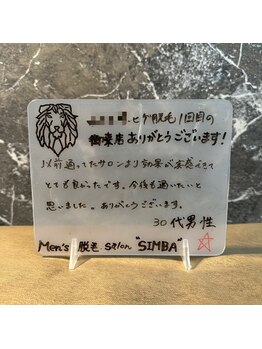 ヒゲ脱毛1回目の
御来店ありがとうございます！
以前通ってたサロンより効果が実感できて
とても良かったです。今後も通いたいと
思いました。ありがとうございます。
30代男性
Men's 脱毛 salon "SIMBA"